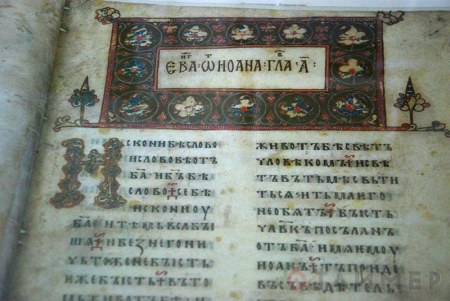 ЕВА҃ Ѿ ИОАНА ГЛА А҃:
ИСКОНИБѢСЛОВО
ИСЛОВОБѢОТЪ
БА҃ИБЪБѢ
СЛОВОСЕБѢ
ИСКОНИОУ
БА҃ИТѢМЬВСЯБЫ
ШАИБЕЗНЕГОНИ
ЧЬТОЖЕБЫСТЬ
ИЖЕБЫСТЬВЪТО
ЖИВОТЪБѢСВѢТЪ
ЧЛОВѢКОМЪИСВѢ
ТЪВЪТЬМѢСВЬТИ
ТЬСЯИТЬМАЮГО
НЕОБЯТЪБЫСТЬ
ЧЛ҃ВКЪПОСЪЛАНЪ
ОТЪБА҃ИМЯЮМОУ
ИОАНЪТЪПРИДЕ
ВЪСЪВѢДѢТЕЛЬ